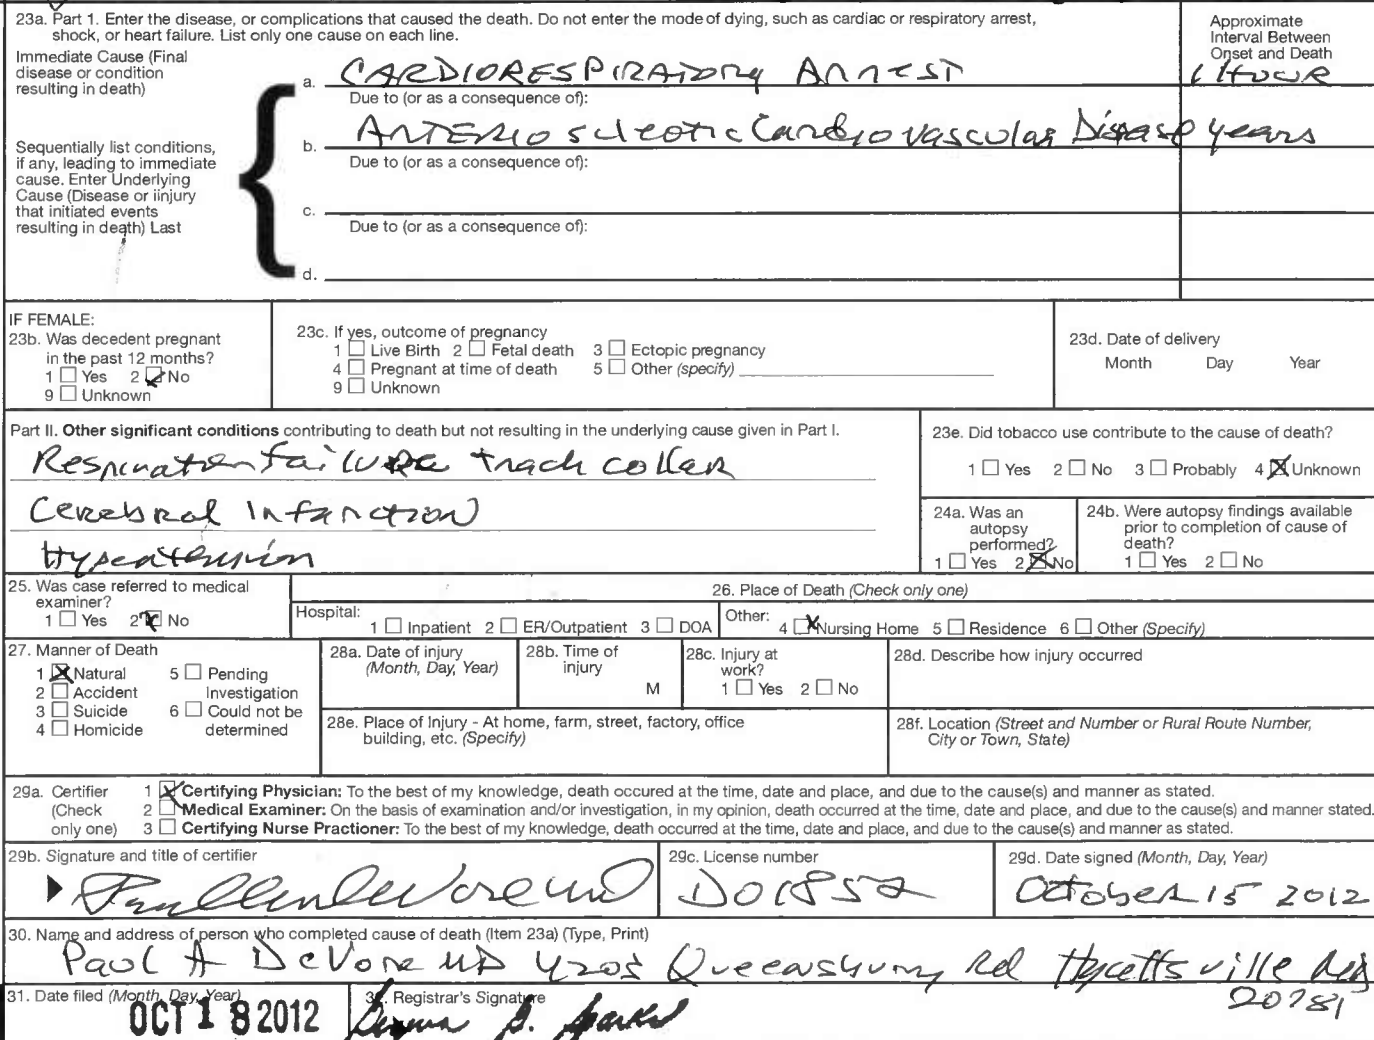 23a. Part 1. Enter the disease, or complications that caused the death. Do not enter the mode of dying, such as cardiac or respiratory arrest,
shock, or heart failure. List only one cause on each line.
Approximate
Interval Between
Onset and Death
Immediate Cause (Final
disease or condition
resulting in death)
a. CARDIORESPIRATORY ARREST
1 HOUR
Due to (or as a consequence of):
Sequentially list conditions,
if any, leading to immediate
cause. Enter Underlying
Cause (Disease or iinjury
that initiated events
resulting in death) Last
b. ARTERIO scleotic Cardiovascular Disease years
Due to (or as a consequence of):
c.
Due to (or as a consequence of):
d.
IF FEMALE:
23b. Was decedent pregnant
in the past 12 months?
1 Yes 2 No
9 Unknown
23c. If yes, outcome of pregnancy
1 Live Birth 2 Fetal death 3 Ectopic pregnancy
4 Pregnant at time of death 5 Other (specify)
9 Unknown
23d. Date of delivery
Month Day Year
Part II. Other significant conditions contributing to death but not resulting in the underlying cause given in Part I.
failure trach collar
Cerebral Infarction
Hypertension
23e. Did tobacco use contribute to the cause of death?
1 Yes 2 No 3 Probably 4 Unknown
24a. Was an
autopsy
performed?
1 Yes 2 No
24b. Were autopsy findings available
prior to completion of cause of
death?
1 Yes 2 No
25. Was case referred to medical
examiner?
1 Yes 2 No
26. Place of Death (Check only one)
Hospital: 1 Inpatient 2 ER/Outpatient 3 DOA
Other: 4 Nursing Home 5 Residence 6 Other (Specify)
27. Manner of Death
1 Natural 5 Pending
2 Accident Investigation
3 Suicide 6 Could not be
4 Homicide determined
28a. Date of injury
(Month, Day, Year)
28b. Time of
injury
M
28c. Injury at
work?
1 Yes 2 No
28d. Describe how injury occurred
28e. Place of Injury - At home, farm, street, factory, office
building, etc. (Specify)
28f. Location (Street and Number or Rural Route Number,
City or Town, State)
29a. Certifier
(Check
only one)
1 Certifying Physician: To the best of my knowledge, death occured at the time, date and place, and due to the cause(s) and manner as stated.
2 Medical Examiner: On the basis of examination and/or investigation, in my opinion, death occurred at the time, date and place, and due to the cause(s) and manner stated.
3 Certifying Nurse Practioner: To the best of my knowledge, death occurred at the time, date and place, and due to the cause(s) and manner as stated.
29b. Signature and title of certifier
29c. License number
D01852
29d. Date signed (Month, Day, Year)
October 15 2012
30. Name and address of person who completed cause of death (Item 23a) (Type, Print)
Paul A DeVore MD 4203 Queensbury Rd Hyattsville Md
20781
31. Date filed (Month, Day, Year)
OCT 18 2012
Registrar's Signature